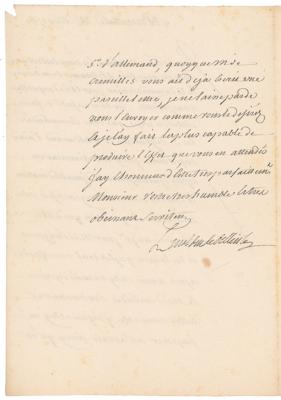 St d'allemand, quoyque M de
Cremilles vous ait deja écrit une
pareille lettre, je ne laisse pas de
vous l'envoyer comme vous le desirez
et je l'ay fait la plus capable de
produire l'effet que vous en attendés
Jay l'honneur d'être tres parfaitemt
Monsieur votre tres humble et tres
obeissant Serviteur